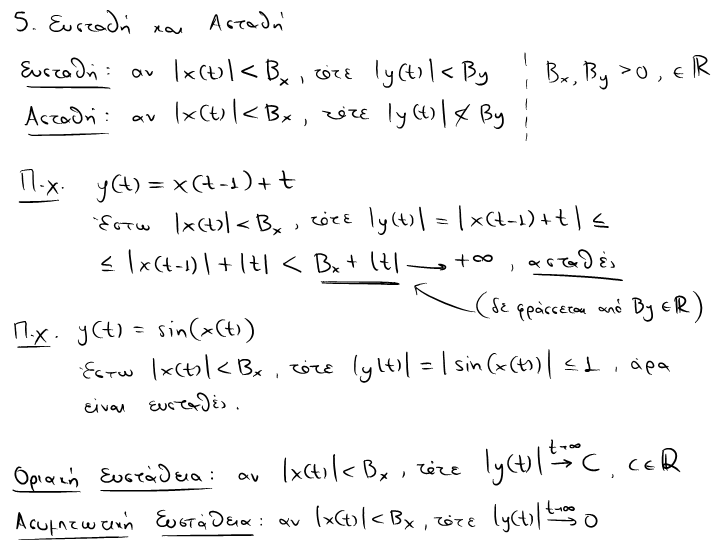 5. Ευσταθή και Ασταθή
Ευσταθή: αν |x(t)| < Bx, τότε |y(t)| < By | Bx, By > 0, ∈ ℝ
Ασταθή: αν |x(t)| < Bx, τότε |y(t)| ≮ By
Π.χ. y(t) = x(t-1) + t
Έστω |x(t)| < Bx, τότε |y(t)| = |x(t-1) + t| ≤
≤ |x(t-1)| + |t| < Bx + |t| → +∞, ασταθές
(δε φράσσεται από By ∈ ℝ)
Π.χ. y(t) = sin(x(t))
Έστω |x(t)| < Bx, τότε |y(t)| = |sin(x(t))| ≤ 1, άρα
είναι ευσταθές.
Οριακή Ευστάθεια: αν |x(t)| < Bx, τότε |y(t)| t→∞→ C, C ∈ ℝ
Ασυμπτωτική Ευστάθεια: αν |x(t)| < Bx, τότε |y(t)| t→∞→ 0